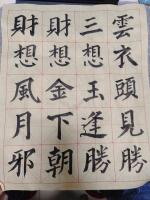 雲衣頭見勝
三想玉逢勝
財想金下朝
財想風月邪